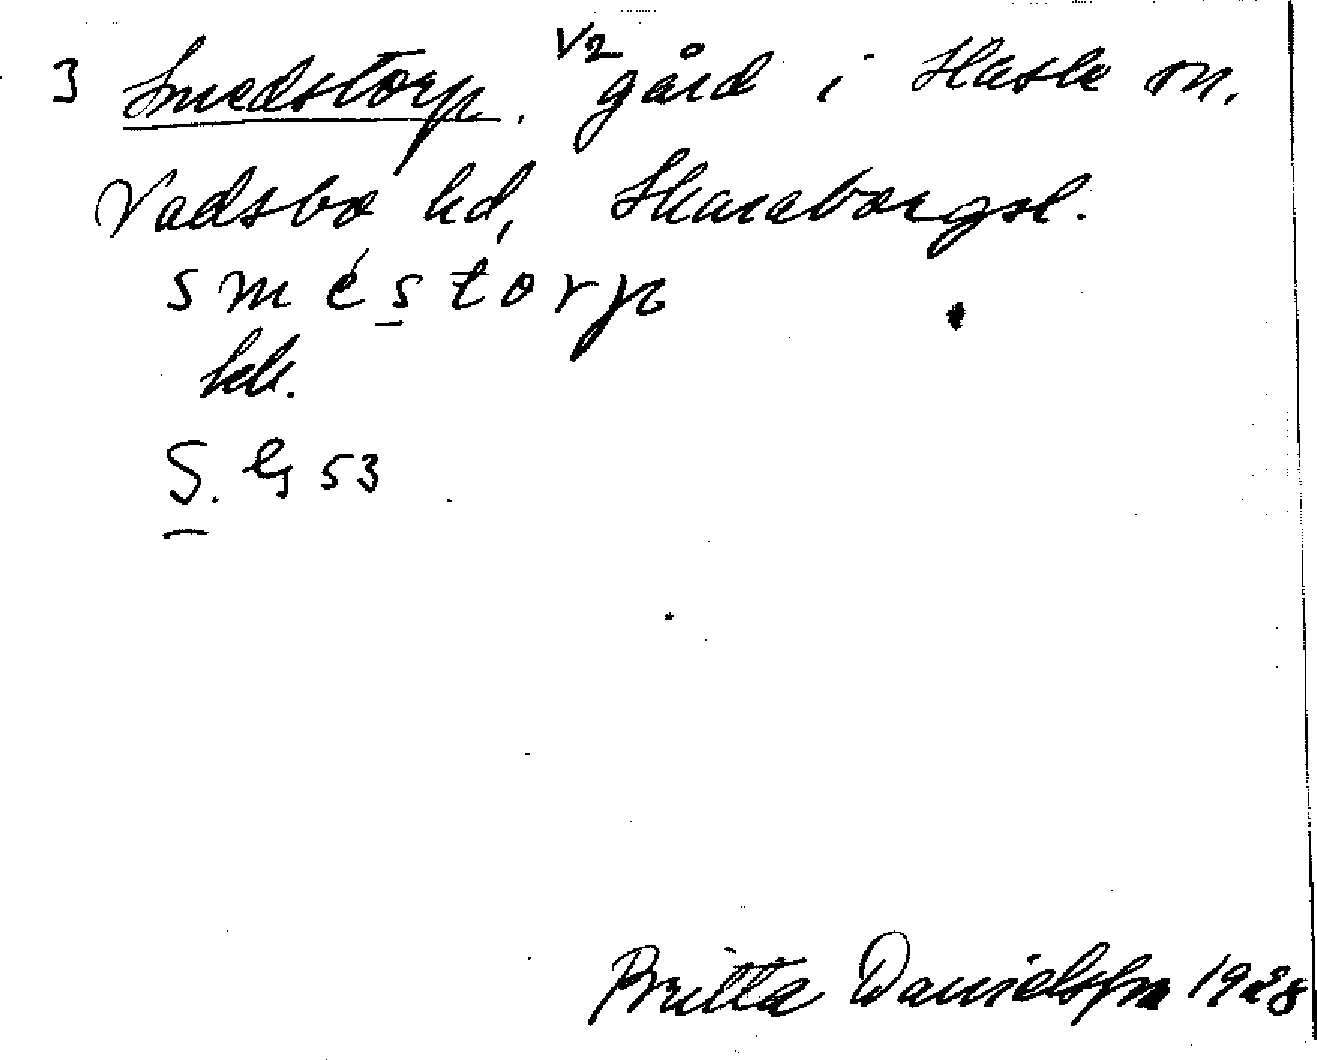 3 Smedstorp. 1/2 gård i Hassle sn.
Vadsbo hd, Skaraborgsl.
sméstòrp
kek.
S. G 53
Britta Danielsson 1928